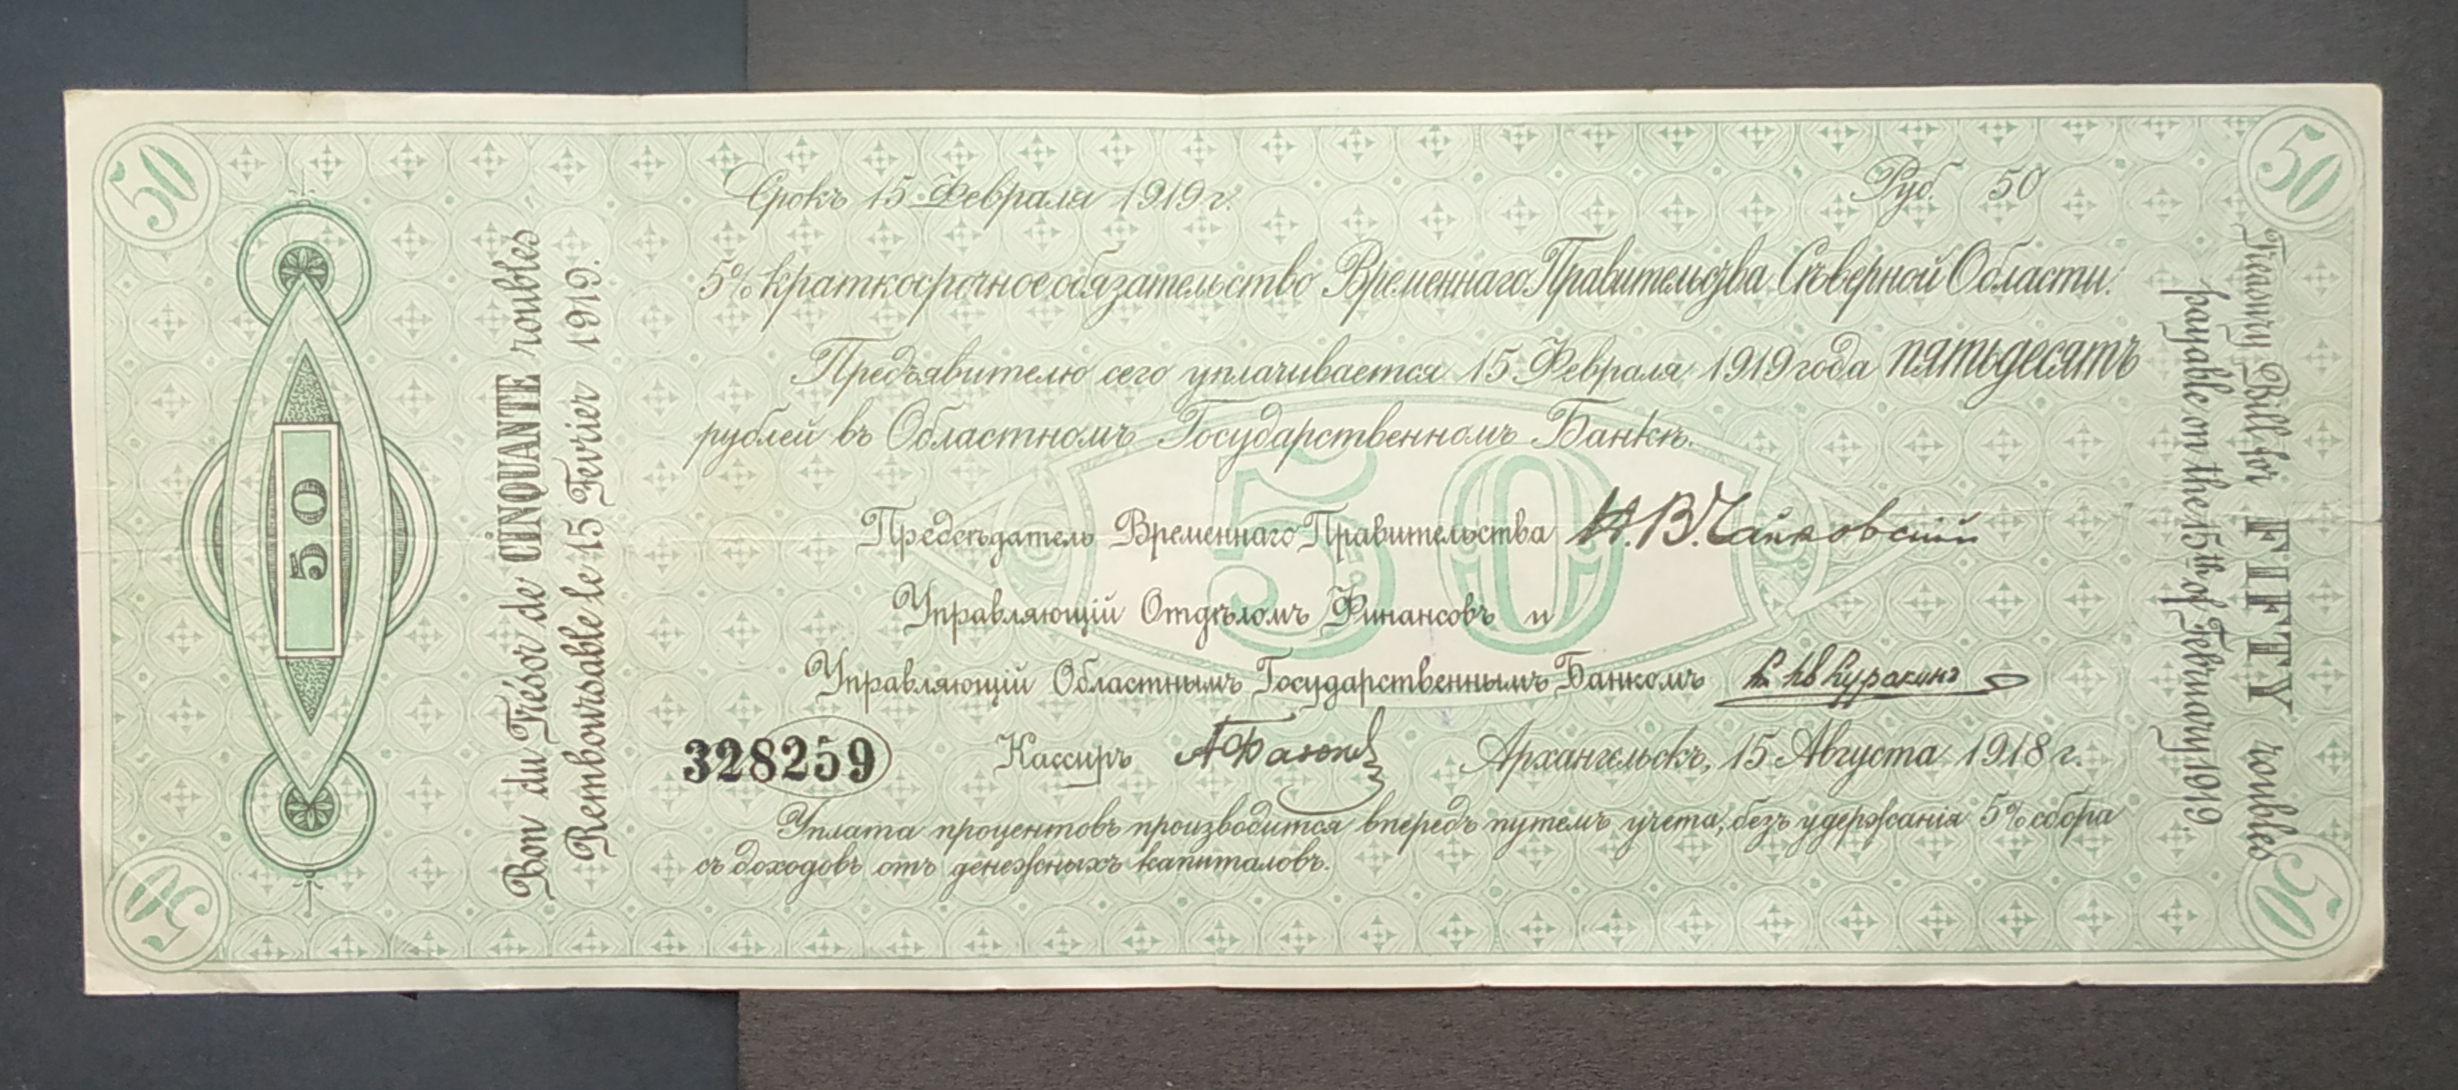 50
50
Срокъ 15 Февраля 1919 г.
Руб. 50
5% краткосрочное обязательство Временнаго Правительства Сѣверной Области.
Предъявителю сего уплачивается 15 Февраля 1919 года пятьдесятъ
рублей въ Областномъ Государственномъ Банкѣ.
50
Предсѣдатель Временнаго Правительства Н.В.Чайковскій
Управляющій Отдѣломъ Финансовъ и
Управляющій Областнымъ Государственнымъ Банкомъ
328259
Кассиръ
Архангельскъ, 15 Августа 1918 г.
Уплата процентовъ производится впередъ путемъ учета, безъ удержанія 5% сбора
съ доходовъ отъ денежныхъ капиталовъ.
50
Bon du Trésor de CINQUANTE roubles
Remboursable le 15 Fevrier 1919.
Treasury Bill for FIFTY roubles
payable on the 15th of February 1919.
50
50